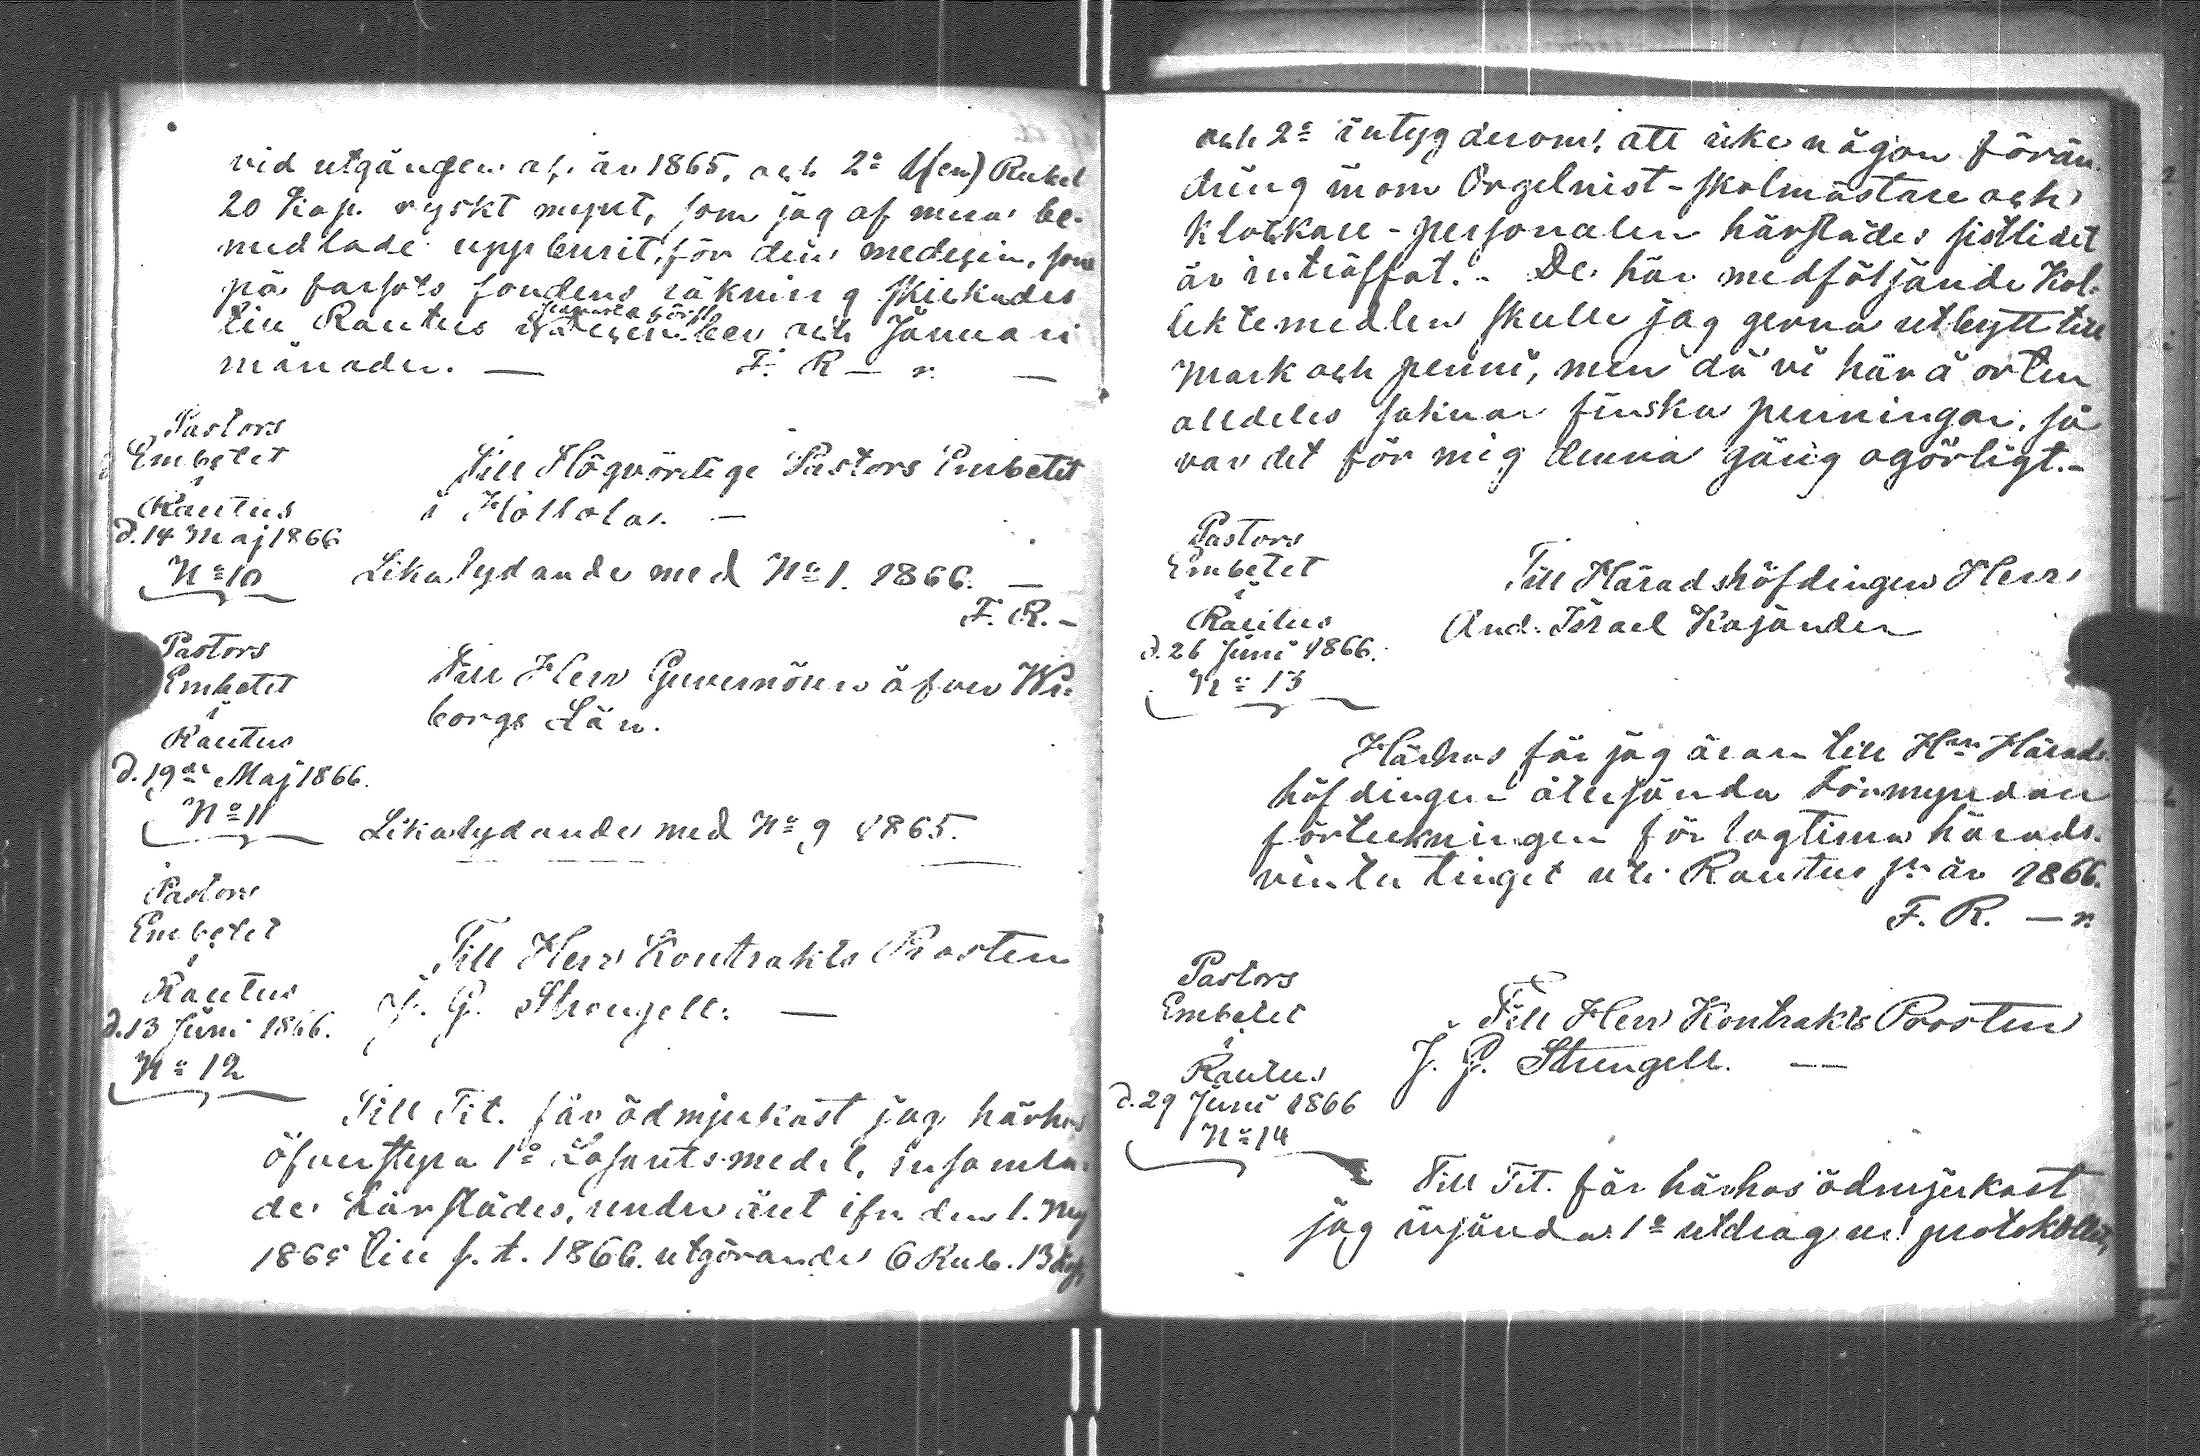 vid utgången af år 1865, och 2o 1(en) Rubel
20 Kop. ryskt mynt, som jag af mera be-
medlade uppburit, för den medesin, som
på farsots fondens räkning skickades
till Rautus i December och Januari
månader. — F. R — r. —
Pastors
Embetet
i
Rautus
d. 14 Maj 1866
No 10
Till Högvördige Pastors Embetet
i Hollola. —
Lika lydande med No 1. 1866. —
F. R. —
Pastors
Embetet
i
Rautus
d. 19de Maj 1866.
No 11
Till Herr Guvernören öfver Wi-
borgs Län.
Likalydande med No 9 1865.
Pastors
Embetet
i
Rautus
d. 13 Juni 1866.
No 12
Till Herr Kontrakts Prosten
J. G. Strengell. —
Till Tit. får ödmjukast jag härhos
öfverstyra 1o medel, insamla-
de härstädes, under året ifrn den 1. Maj
1865 till s. t. 1866. utgörande 6 Rub. 13 Kop
och 2o intyg derom, att icke någon förän-
dring inom Orgelnist-skolmästare och
klockare-personalen härstädes sistlidet
år inträffat. - De här medföljande Kol-
lektemedlen skulle jag gerna utbytt till
mark och penni, men då vi här å orten
alldeles saknar finska penningar, så
var det för mig denna gång ogörligt. -
Pastors
Embetet
i
Rautus
d. 26 Juni 1866.
No 13
Till Häradshöfdingen Herr
And. Israel Kajander
Härhos får jag äran till Hrr Härads-
höfdingen återsända Förmyndare
förteckningen för lagtima härads-
vintertinget uti Rautus sn år 1866.
F. R. — r.
Pastors
Embetet
i
Rautus
d. 29 Juni 1866
No 14
Till Herr Kontrakts Prosten
J. G. Strengell. —
Till Tit. får härhos ödmjukast
jag insända 1o utdrag ur protokollet,